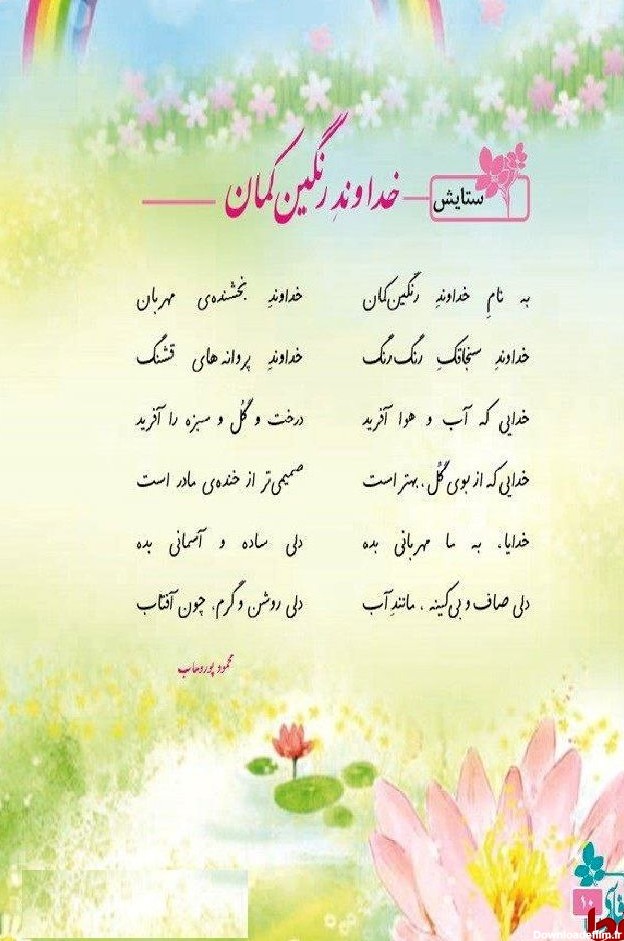 ستایش
خداوندِ رنگین کمان
به نامِ خداوندِ رنگین‌کمان خداوندِ بخشنده‌ی مهربان
خداوندِ سنجاقکِ رنگ رنگ خداوندِ پروانه های قشنگ
خدایی که آب و هوا آفرید درخت و گُل و سبزه را آفرید
خدایی که از بوی گُل، بهتر است صمیمی‌تر از خنده‌ی مادر است
خدایا، به ما مهربانی بده دلی ساده و آسمانی بده
دلی صاف و بی‌کینه ، مانندِ آب دلی روشن و گرم، چون آفتاب
محمود پوروهاب
۱۰
Downloadefilm.fr